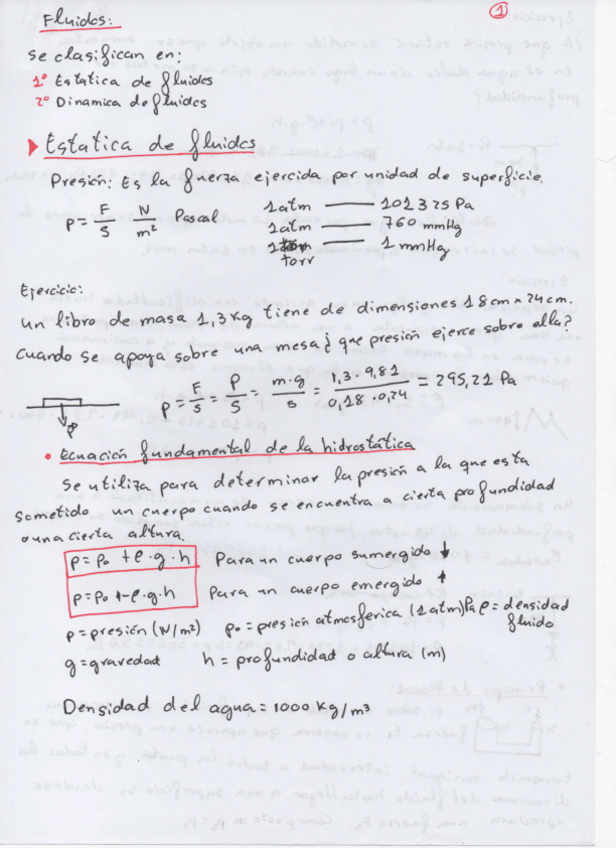 1
Fluidos:
se clasifican en:
1º Estatica de fluidos
2º Dinamica de fluidos
Estatica de fluidos
Presión: Es la fuerza ejercida por unidad de superficie.
p = F/S N/m² Pascal
1 atm —— 101325 Pa
1 atm —— 760 mmHg
1 torr —— 1 mmHg
Ejercicio:
un libro de masa 1,3 Kg tiene de dimensiones 18cm × 24cm.
Cuando se apoya sobre una mesa ¿ que presión ejerce sobre ella?
p = F/S = P/S = m·g/s = 1,3 · 9,81 / 0,18 · 0,24 = 295,21 Pa
P
• Ecuación fundamental de la hidrostática
se utiliza para determinar la presión a la que esta
sometido un cuerpo cuando se encuentra a cierta profundidad
o una cierta altura.
p = p₀ + ρ · g · h Para un cuerpo sumergido ↓
p = p₀ - ρ · g · h Para un cuerpo emergido ↑
p = presión (N/m²) p₀ = presión atmosferica (1 atm) Pa ρ = densidad
fluido
g = gravedad h = profundidad o altura (m)
Densidad del agua = 1000 Kg/m³